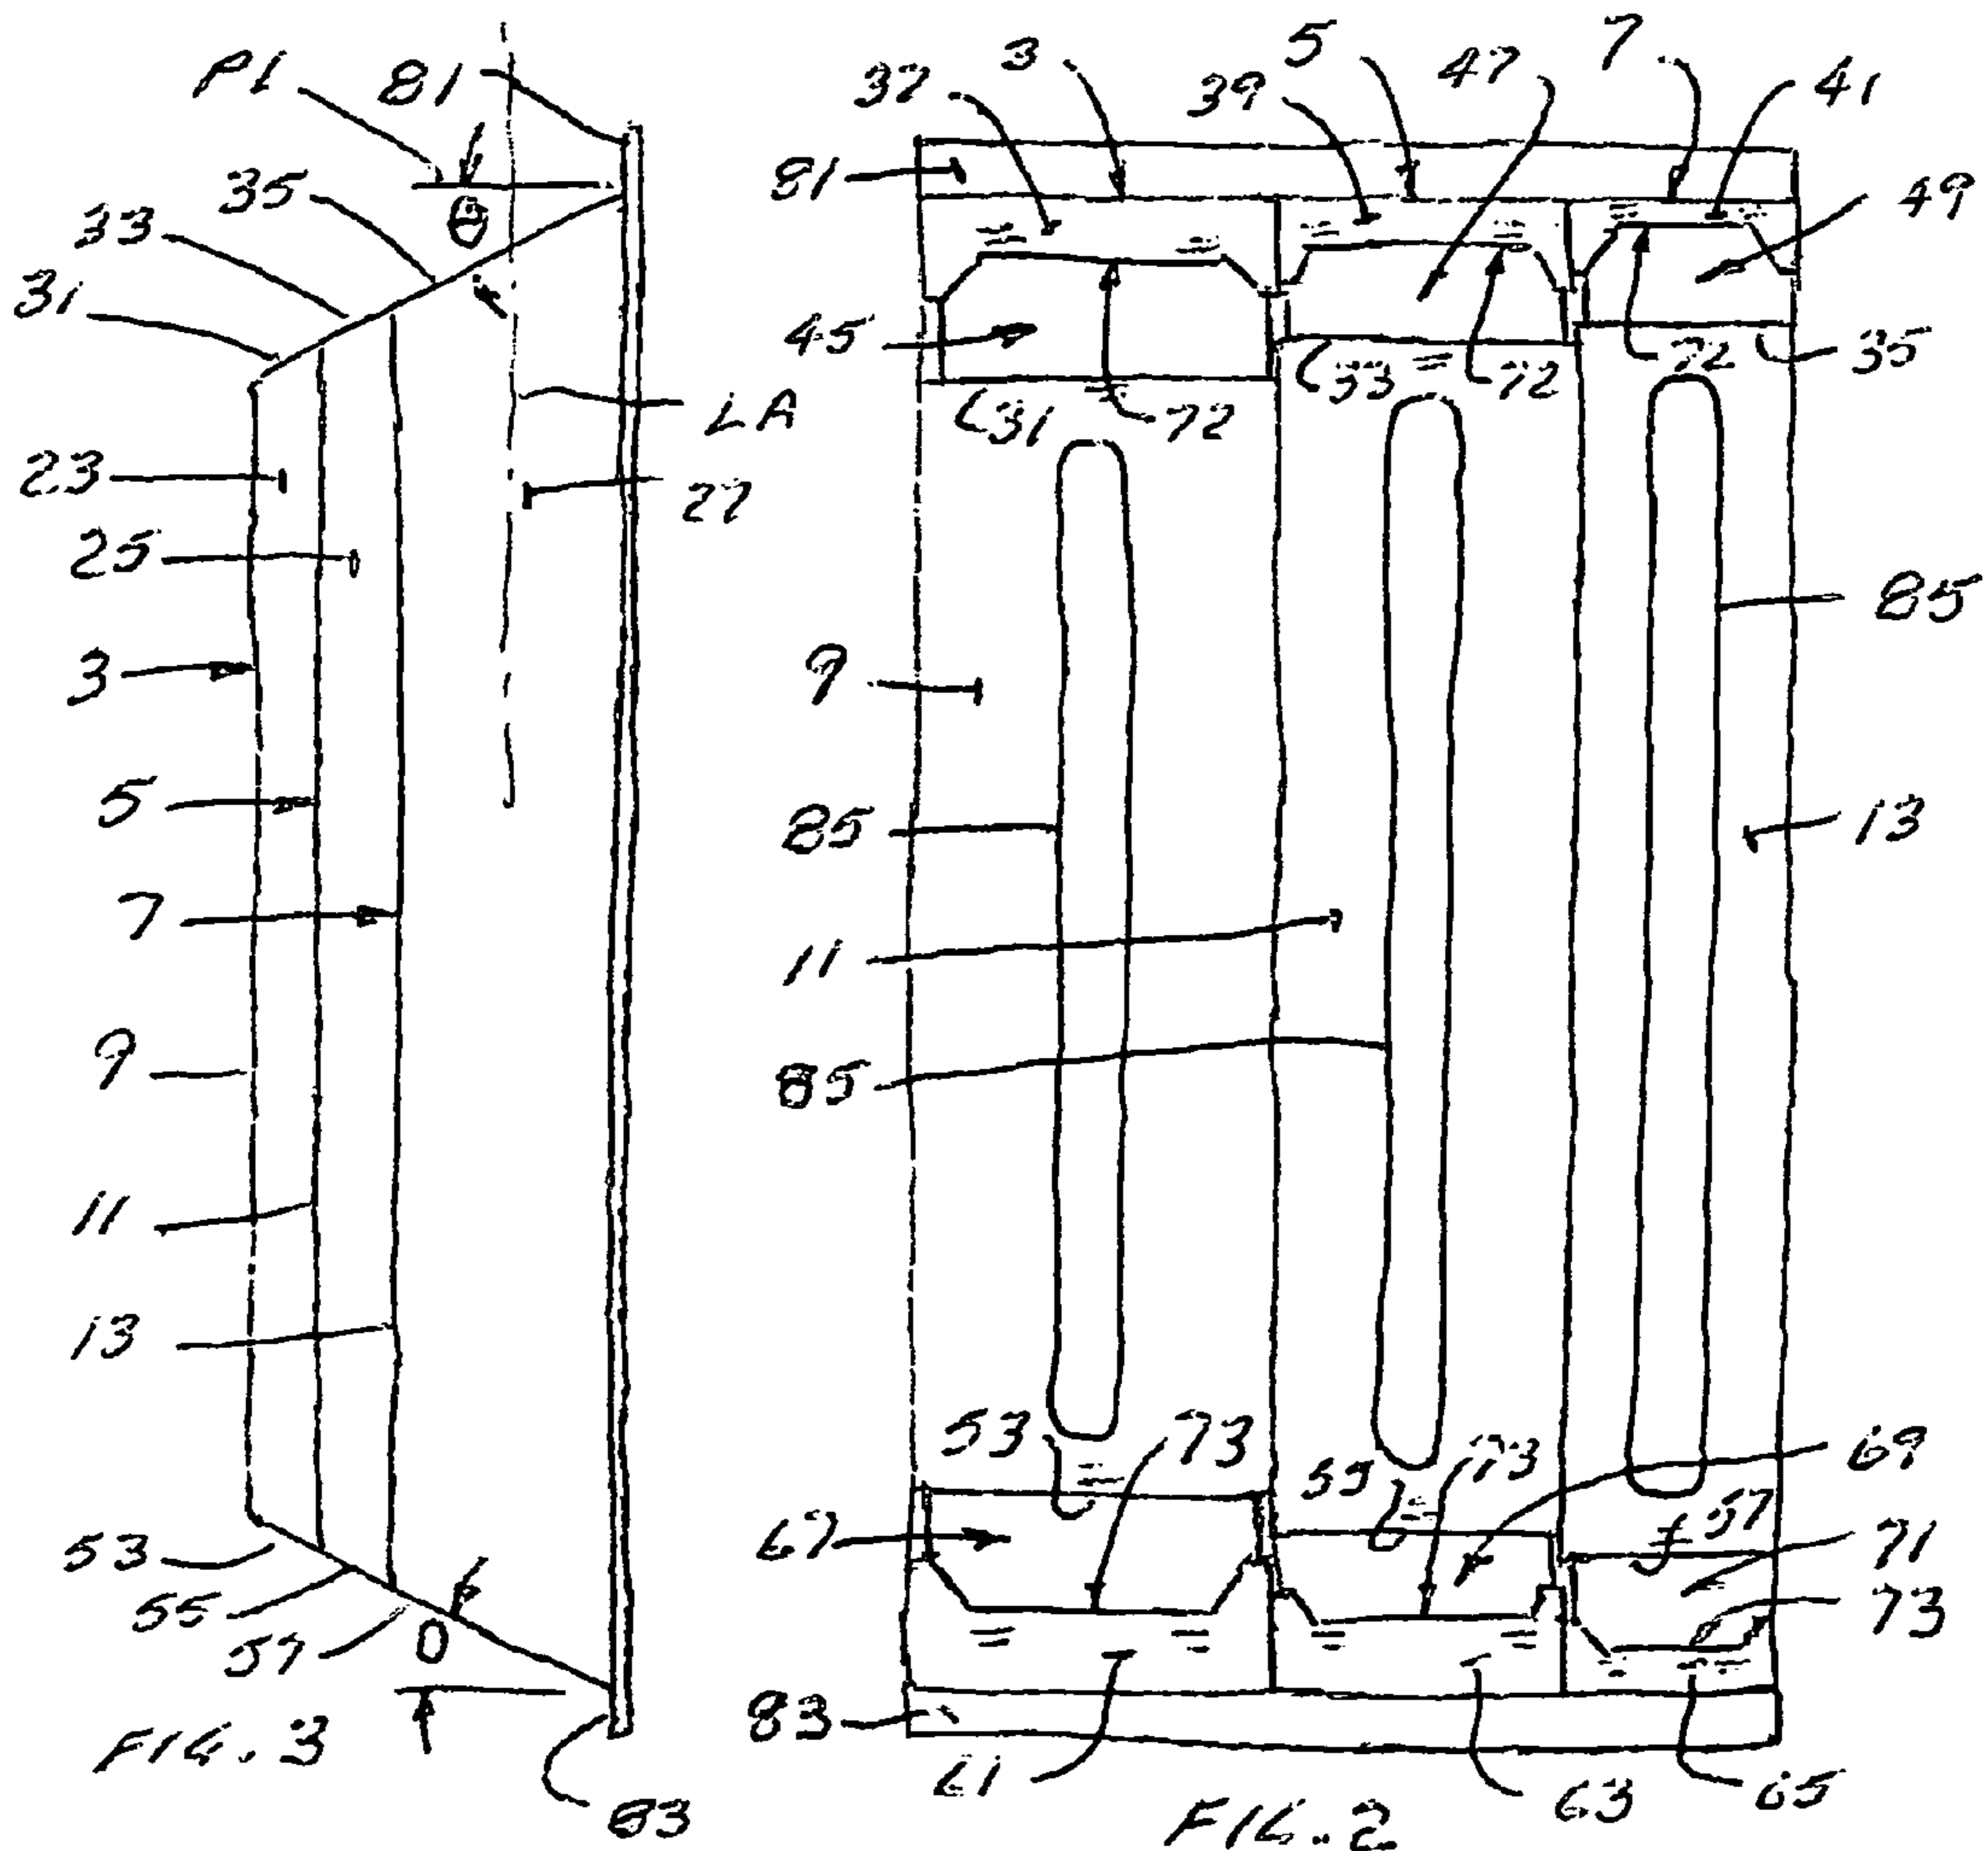 P1
81
35
θ
33
31
LA
23
27
25
3
5
7
9
11
13
53
55
57
θ
FIG. 3
83
3
5
7
37
39
47
41
81
49
45
35
31
72
33
72
72
9
85
85
13
11
85
53
73
55
73
69
67
57
71
73
83
61
63
65
FIG. 2